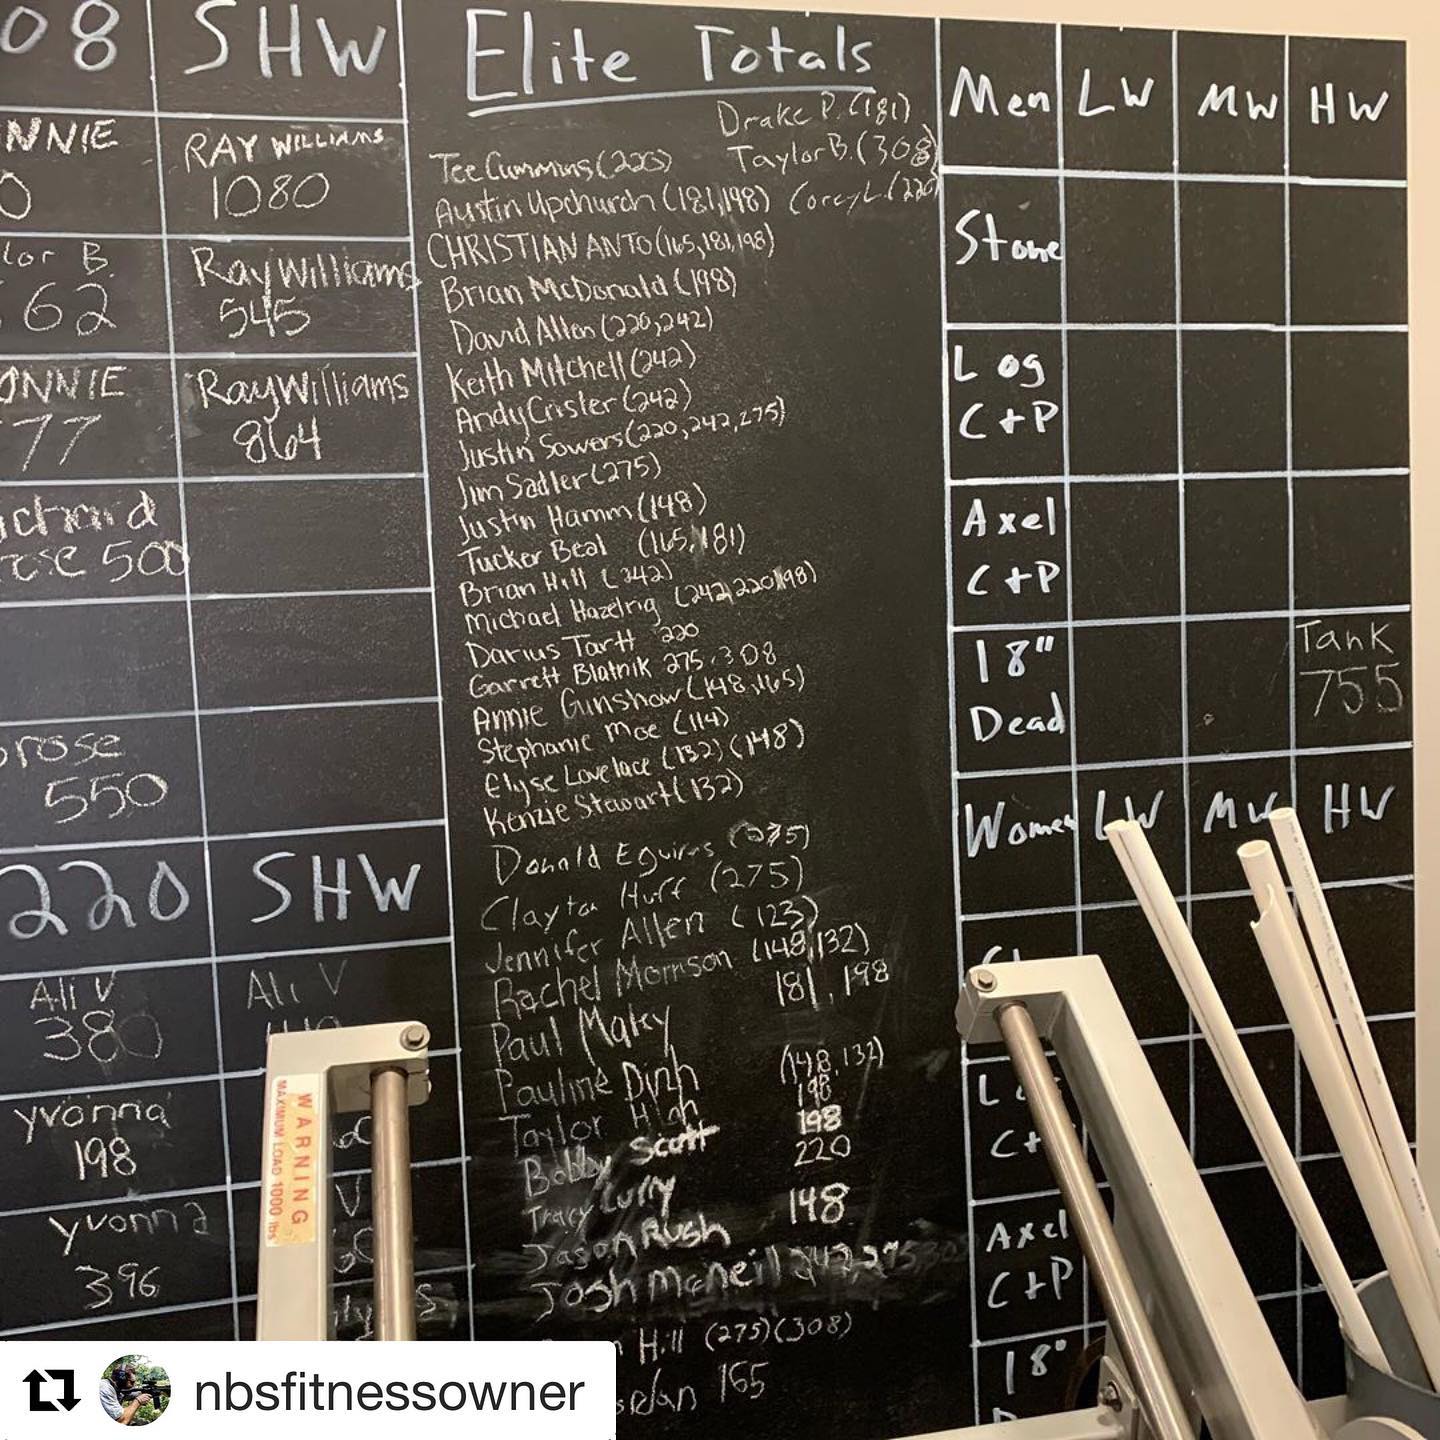 08
SHW
NNIE
RAY WILLIAMS
0
1080
lor B.
Ray Williams
62
545
ONNIE
Ray Williams
77
864
500
rose
550
220
SHW
Ali V
Ali V
380
yvonna
198
yvonna
396
WARNING
MAXIMUM LOAD 1000 lbs
Elite Totals
Drake P. (181)
Tee Cummins (220) Taylor B. (308)
Austin Upchurch (181,198) Corey L. (220)
CHRISTIAN ANTO (165,181,198)
Brian McDonald (198)
David Allen (220,242)
Keith Mitchell (242)
Andy Crisler (242)
Justin Sowers (220,242,275)
Jim Sadler (275)
Justin Hamm (148)
Tucker Beal (165,181)
Brian Hill (242)
Michael Hazelrig (242,220,198)
Darius Tartt 220
Garrett Blatnik 275,308
Annie Gunshow (148,165)
Stephanie Moe (114)
Elyse Lovelace (132) (148)
Kenzie Stewart (132)
Donald
Clayton Huff (275)
Jennifer Allen (123)
Rachel Morrison (148,132)
Paul Maley 181, 198
Pauline Dinh (148,132)
Taylor High 198
Bobby Scott 198
Tracy 220
Jason Rush 148
Josh McNeil 242,275
Hill (275)(308)
165
Men LW MW HW
Stone
Log
C+P
Axel
C+P
18"
Dead
Tank
755
Women LW MW HW
C+
Axel
C+P
18"
nbsfitnessowner